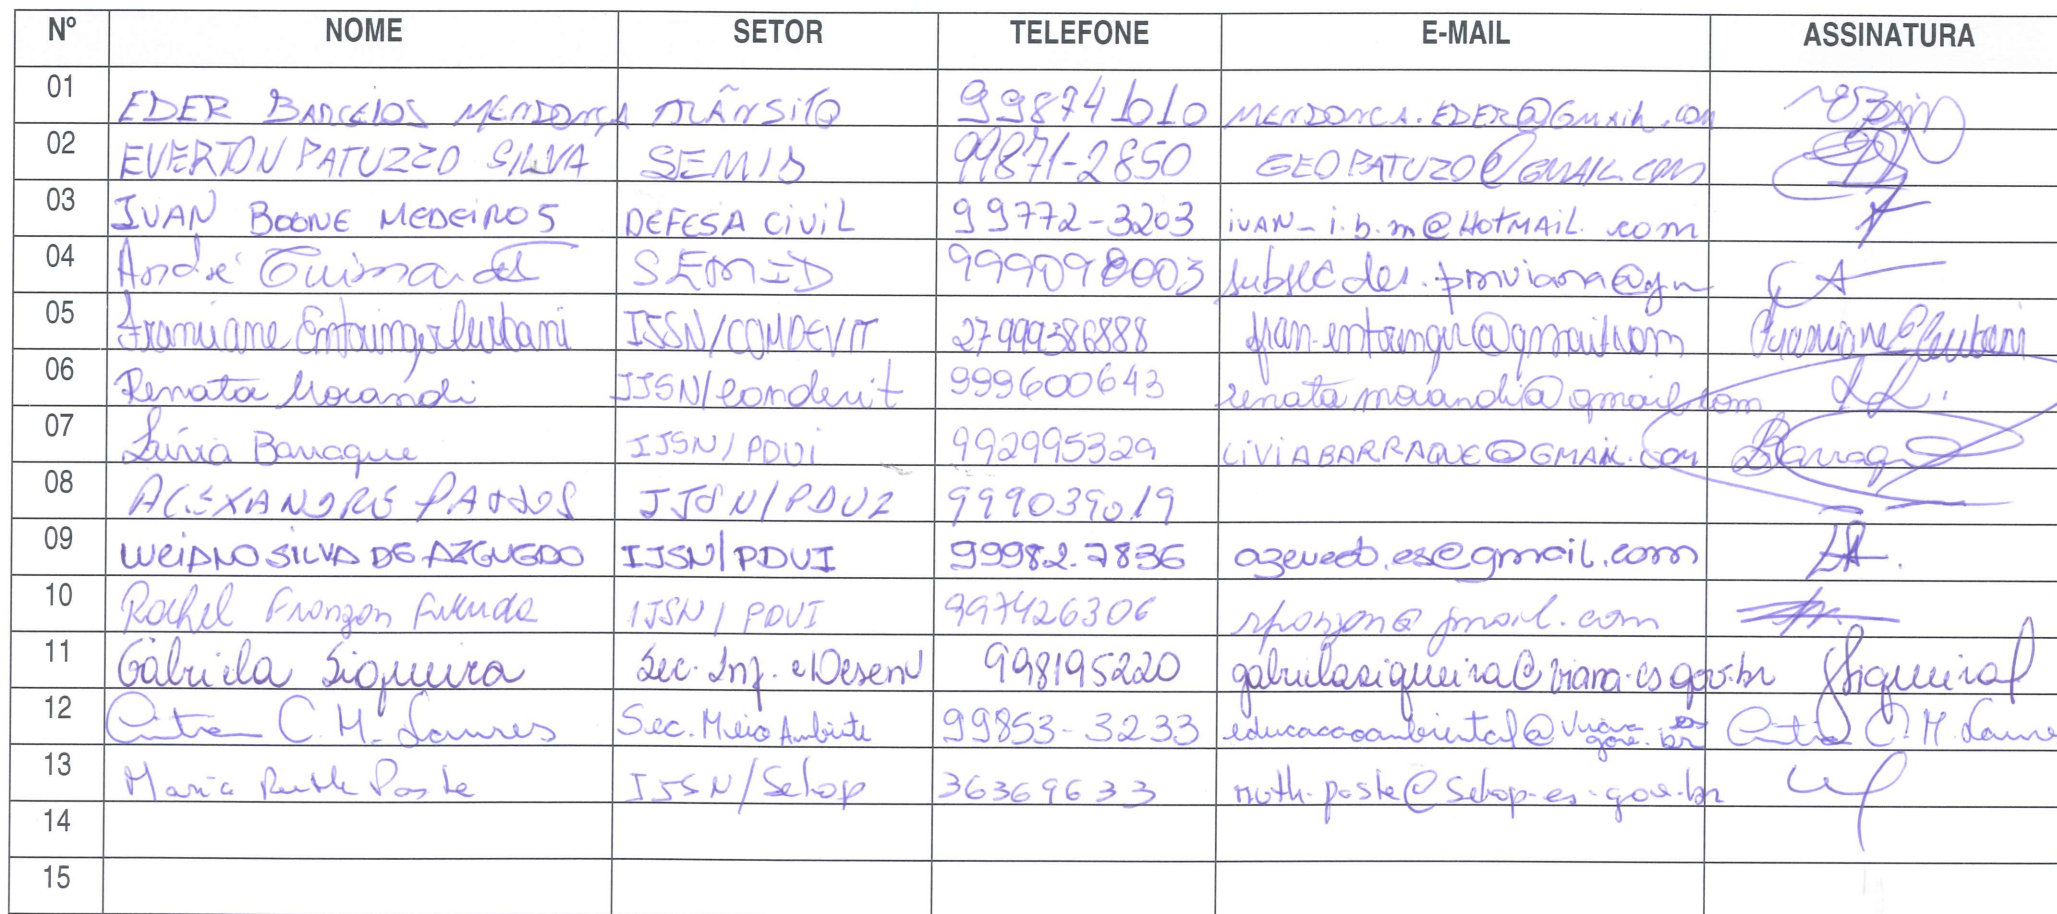 Nº NOME SETOR TELEFONE E-MAIL ASSINATURA
01 EDER BARCELOS MENDONÇA TRÂNSITO 998741010 MENDONCA.EDER@GMAIL.COM
02 EVERTON PATUZZO SILVA SEMID 99871-2850 GEOPATUZO@GMAIL.COM
03 IVAN BOONE MEDEIROS DEFESA CIVIL 99772-3203 iVAN_i.b.m@HOTMAIL.com
04 André Guimarães SEMID 999098003
05 Framiane Entringer Lurbani IJSN/COMDEVIT 27999386888 fran.entringer@gmail.com
06 Renata Morandi IJSN/Comdevit 999600643 renatamorandi@gmail.com
07 Lívia Barraque IJSN/PDUI 992995329 LIVIABARRAQUE@GMAIL.COM Barraque
08 ALEXANDRE PASSOS IJSN/PDUI 999039019
09 WEIDNO SILVA DE AZEVEDO IJSN/PDUI 99982.7836 azevedo.es@gmail.com
10 Rachel Franzan Fukuda IJSN/PDUI 997426306
11 Gabriela Siqueira Sec. Inf. e Desenv 998195220 gabrielasiqueira@viana.es.gov.br GSiqueira
12 C. M. Loures Sec. Meio Ambiente 99853-3233 educacaoambiental@viana.es.gov.br C. M. Loures
13 Maria Ruth Paste IJSN/Setop 36369633 ruth.paste@setop.es.gov.br
14
15